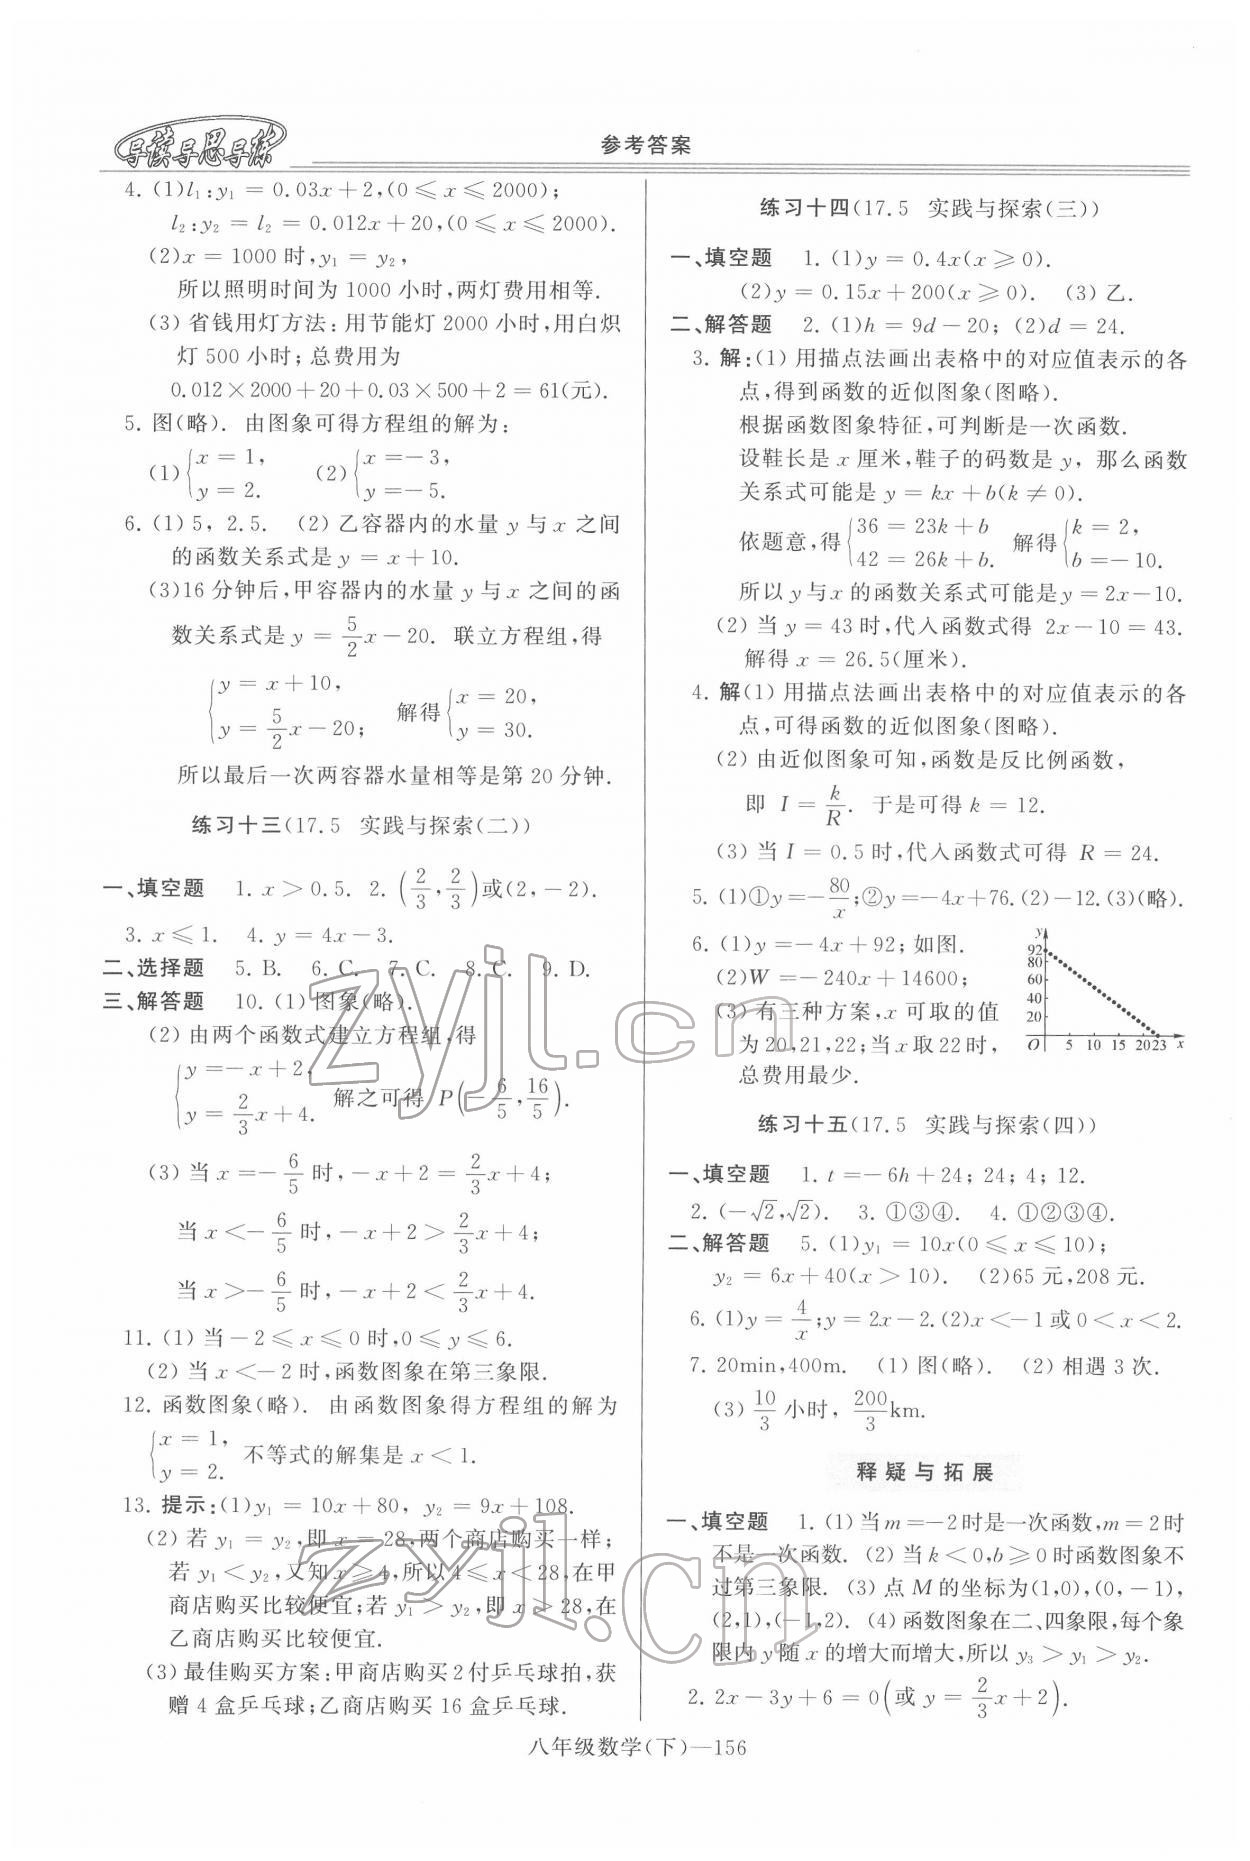 导读导思导练
参考答案
4. (1)l₁:y₁ = 0.03x+2,(0⩽x⩽2000);
l₂:y₂ = l₂ = 0.012x+20,(0⩽x⩽2000).
(2)x = 1000时,y₁ = y₂,
所以照明时间为1000小时,两灯费用相等.
(3) 省钱用灯方法:用节能灯2000小时,用白炽
灯500小时;总费用为
0.012×2000+20+0.03×500+2=61(元).
5. 图(略). 由图象可得方程组的解为:
(1){x = 1, y = 2. (2){x =-3, y =-5.
6. (1) 5, 2.5. (2) 乙容器内的水量 y 与 x 之间
的函数关系式是 y = x+10.
(3)16分钟后,甲容器内的水量 y 与 x 之间的函
数关系式是 y = 5/2x-20. 联立方程组,得
{y = x+10, y = 5/2x-20; 解得{x = 20, y = 30.
所以最后一次两容器水量相等是第20分钟.
练习十三(17.5 实践与探索(二))
一、填空题 1. x>0.5. 2. (2/3,2/3)或(2,-2).
3. x⩽1. 4. y = 4x-3.
二、选择题 5. B. 6. C. 7. C. 8. C. 9. D.
三、解答题 10. (1) 图象(略).
(2) 由两个函数式建立方程组,得
{y=-x+2, y = 2/3x+4. 解之可得 P(-6/5,16/5).
(3) 当 x=-6/5 时,-x+2 = 2/3x+4;
当 x<-6/5 时,-x+2 > 2/3x+4;
当 x>-6/5 时,-x+2 < 2/3x+4.
11. (1) 当-2⩽x⩽0时,0⩽y⩽6.
(2) 当x<-2时,函数图象在第三象限.
12. 函数图象(略). 由函数图象得方程组的解为
{x = 1, y = 2. 不等式的解集是 x<1.
13. 提示:(1)y₁ = 10x+80, y₂ = 9x+108.
(2) 若 y₁ = y₂,即 x = 28,两个商店购买一样;
若 y₁<y₂,又知 x⩾4,所以4⩽x<28,在甲
商店购买比较便宜;若 y₁>y₂,即 x>28,在
乙商店购买比较便宜.
(3) 最佳购买方案:甲商店购买2付乒乓球拍,获
赠4盒乒乓球;乙商店购买16盒乒乓球.
练习十四(17.5 实践与探索(三))
一、填空题 1. (1)y = 0.4x(x⩾0).
(2)y = 0.15x+200(x⩾0). (3) 乙.
二、解答题 2. (1)h = 9d-20; (2)d = 24.
3. 解:(1) 用描点法画出表格中的对应值表示的各
点,得到函数的近似图象(图略).
根据函数图象特征,可判断是一次函数.
设鞋长是 x 厘米,鞋子的码数是 y, 那么函数
关系式可能是 y = kx+b(k≠0).
依题意,得{36 = 23k+b 42 = 26k+b. 解得{k = 2, b =-10.
所以 y与x 的函数关系式可能是y = 2x-10.
(2) 当 y = 43时,代入函数式得 2x-10 = 43.
解得 x = 26.5(厘米).
4. 解(1) 用描点法画出表格中的对应值表示的各
点,可得函数的近似图象(图略).
(2) 由近似图象可知,函数是反比例函数,
即 I = k/R. 于是可得 k = 12.
(3) 当 I = 0.5时,代入函数式可得 R = 24.
5. (1)①y=-80/x;②y=-4x+76.(2)-12.(3)(略).
6. (1)y =-4x+92;如图.
(2)W =-240x+14600;
(3) 有三种方案,x 可取的值
为20,21,22;当x取22时,
总费用最少.
y
92
80
60
40
20
O 5 10 15 2023 x
练习十五(17.5 实践与探索(四))
一、填空题 1. t =-6h+24; 24; 4; 12.
2. (-√2,√2). 3. ①③④. 4. ①②③④.
二、解答题 5. (1)y₁ = 10x(0⩽x⩽10);
y₂ = 6x+40(x>10). (2)65元,208元.
6. (1)y = 4/x;y = 2x-2.(2)x<-1或0<x<2.
7. 20min,400m. (1) 图(略). (2) 相遇3次.
(3) 10/3 小时, 200/3km.
释疑与拓展
一、填空题 1. (1) 当m=-2时是一次函数,m = 2时
不是一次函数. (2) 当k<0,b⩾0时函数图象不
过第三象限. (3) 点 M 的坐标为(1,0),(0,-1),
(2,1),(-1,2). (4) 函数图象在二、四象限,每个象
限内 y 随 x 的增大而增大,所以 y₃>y₁>y₂.
2. 2x-3y+6 = 0(或 y = 2/3x+2).
八年级数学(下)—156
zyjl.cn
zyjl.cn